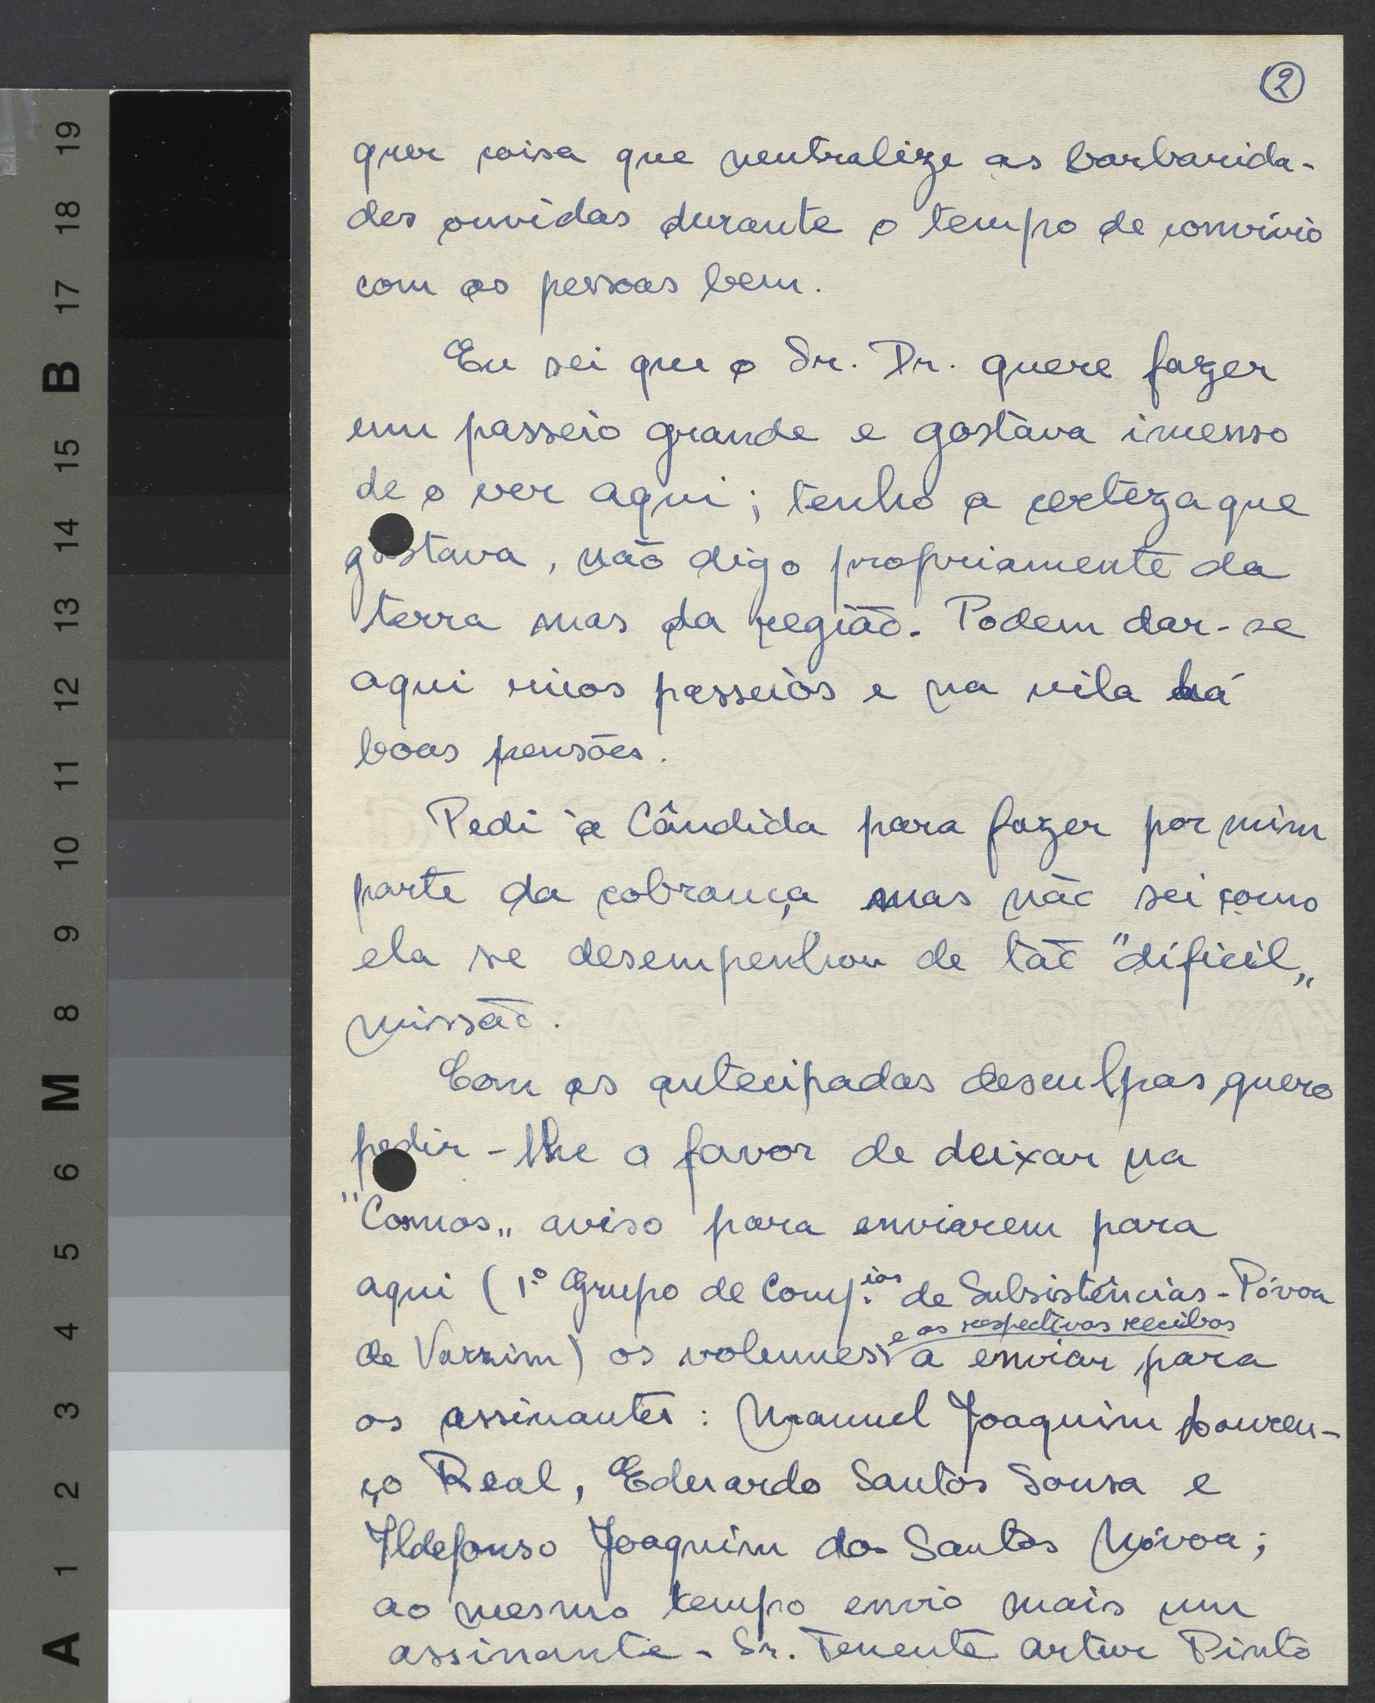 2
quer coisa que neutralize as barbarida-
des ouvidas durante o tempo de convívio
com as pessoas bem.
Eu sei que o Sr. Dr. quere fazer
um passeio grande e gostava imenso
de o ver aqui; tenho a certeza que
gostava, não digo propriamente da
terra mas da região. Podem dar-se
aqui ricos passeios e na vila há
boas pensões.
Pedi à Cândida para fazer por mim
parte da cobrança mas não sei como
ela se desempenhou de tão "dificil„
missão.
Com as antecipadas desculpas, quero
pedir-lhe o favor de deixar na
"Cosmos„ aviso para enviarem para
aqui (1.º Grupo de Comp.ias de Subsistências - Póvoa
e os respectivos recibos
de Varzim) os volumes a enviar para
os assinantes: Manuel Joaquim Louren-
ço Real, Eduardo Santos Sousa e
Ildefonso Joaquim dos Santos Nóvoa;
ao mesmo tempo envio mais um
assinante - Sr. Tenente Artur Pinto
A 1 2 3 4 5 6 M 8 9 10 11 12 13 14 15 B 17 18 19